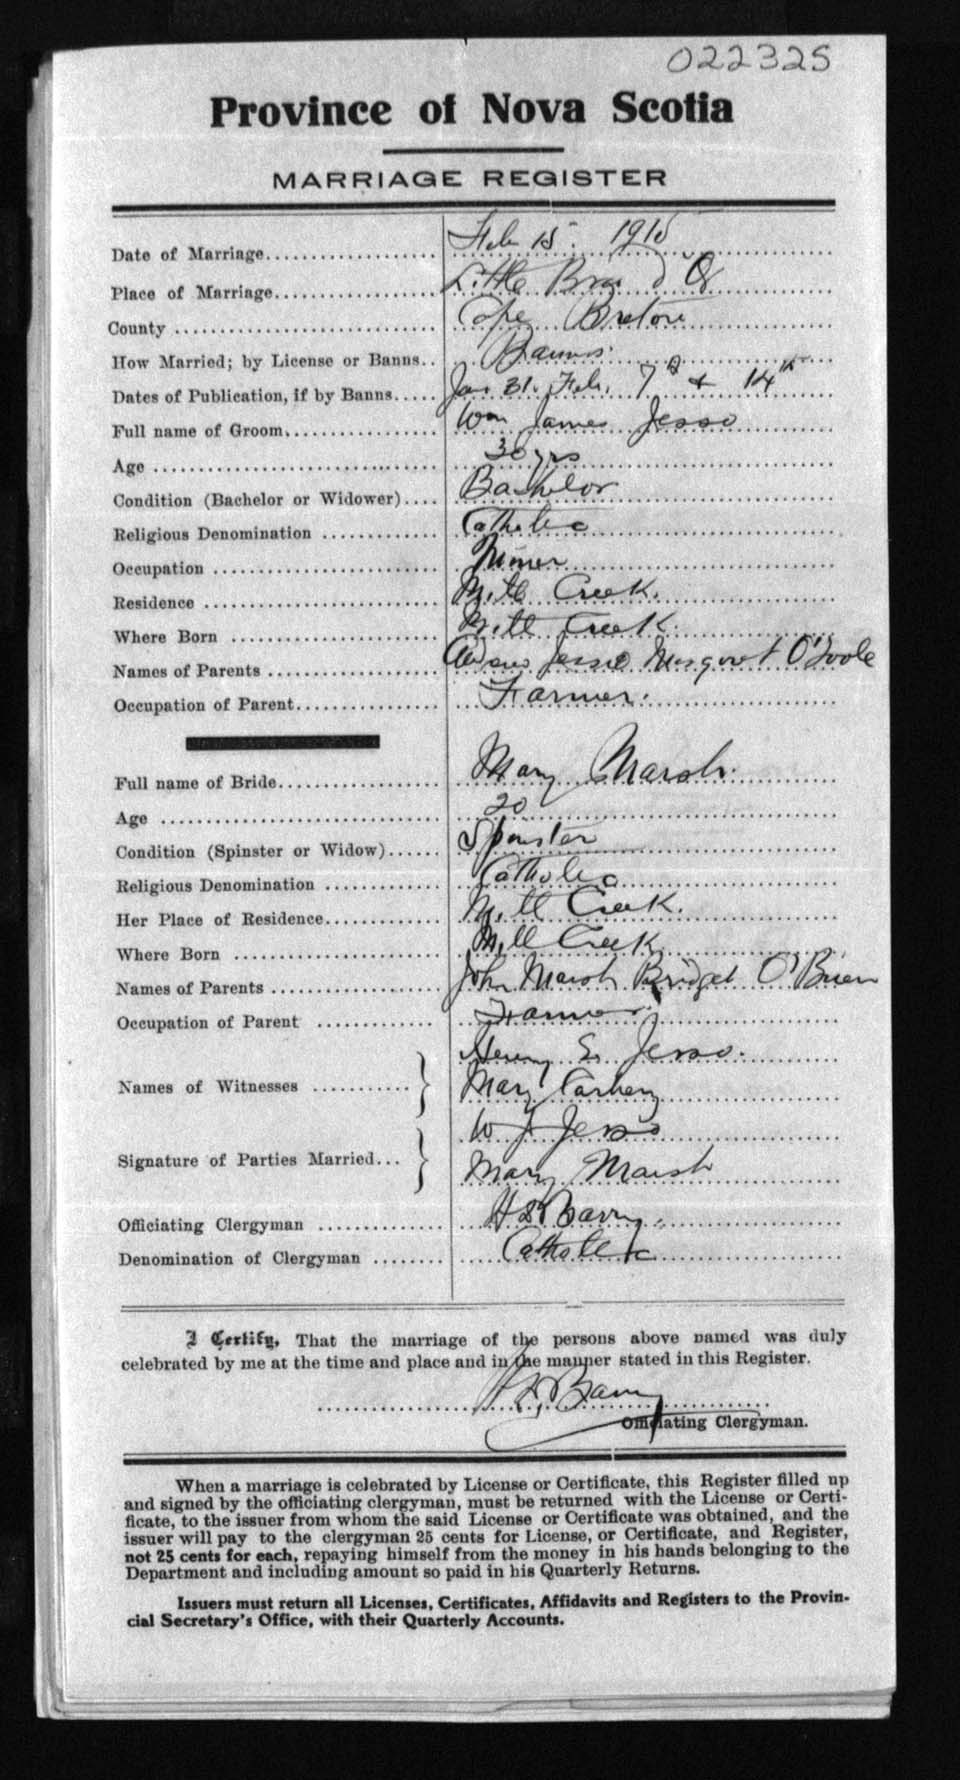 022325
Province of Nova Scotia
MARRIAGE REGISTER
Date of Marriage Feb 15. 1915
Place of Marriage Little Bras d Or
County Cape Breton
How Married; by License or Banns Banns.
Dates of Publication, if by Banns Jan 31. Feb. 7th + 14th
Full name of Groom Wm James Jesso
Age 30 yrs
Condition (Bachelor or Widower) Bachelor
Religious Denomination Catholic
Occupation Miner
Residence Mill Creek.
Where Born Mill Creek.
Names of Parents Andrew Jesso Margaret O'Toole
Occupation of Parent Farmer.
Full name of Bride Mary Marsh.
Age 20
Condition (Spinster or Widow) Spinster
Religious Denomination Catholic
Her Place of Residence Mill Creek.
Where Born Mill Creek
Names of Parents John Marsh Bridget O'Brien
Occupation of Parent Farmer
Names of Witnesses Henry Jesso.
Mary
Signature of Parties Married W J Jesso
Mary Marsh
Officiating Clergyman Barry.
Denomination of Clergyman Catholic
I Certify, That the marriage of the persons above named was duly
celebrated by me at the time and place and in the manner stated in this Register.
Barry
Officiating Clergyman.
When a marriage is celebrated by License or Certificate, this Register filled up
and signed by the officiating clergyman, must be returned with the License or Certi-
ficate, to the issuer from whom the said License or Certificate was obtained, and the
issuer will pay to the clergyman 25 cents for License, or Certificate, and Register,
not 25 cents for each, repaying himself from the money in his hands belonging to the
Department and including amount so paid in his Quarterly Returns.
Issuers must return all Licenses, Certificates, Affidavits and Registers to the Provin-
cial Secretary's Office, with their Quarterly Accounts.